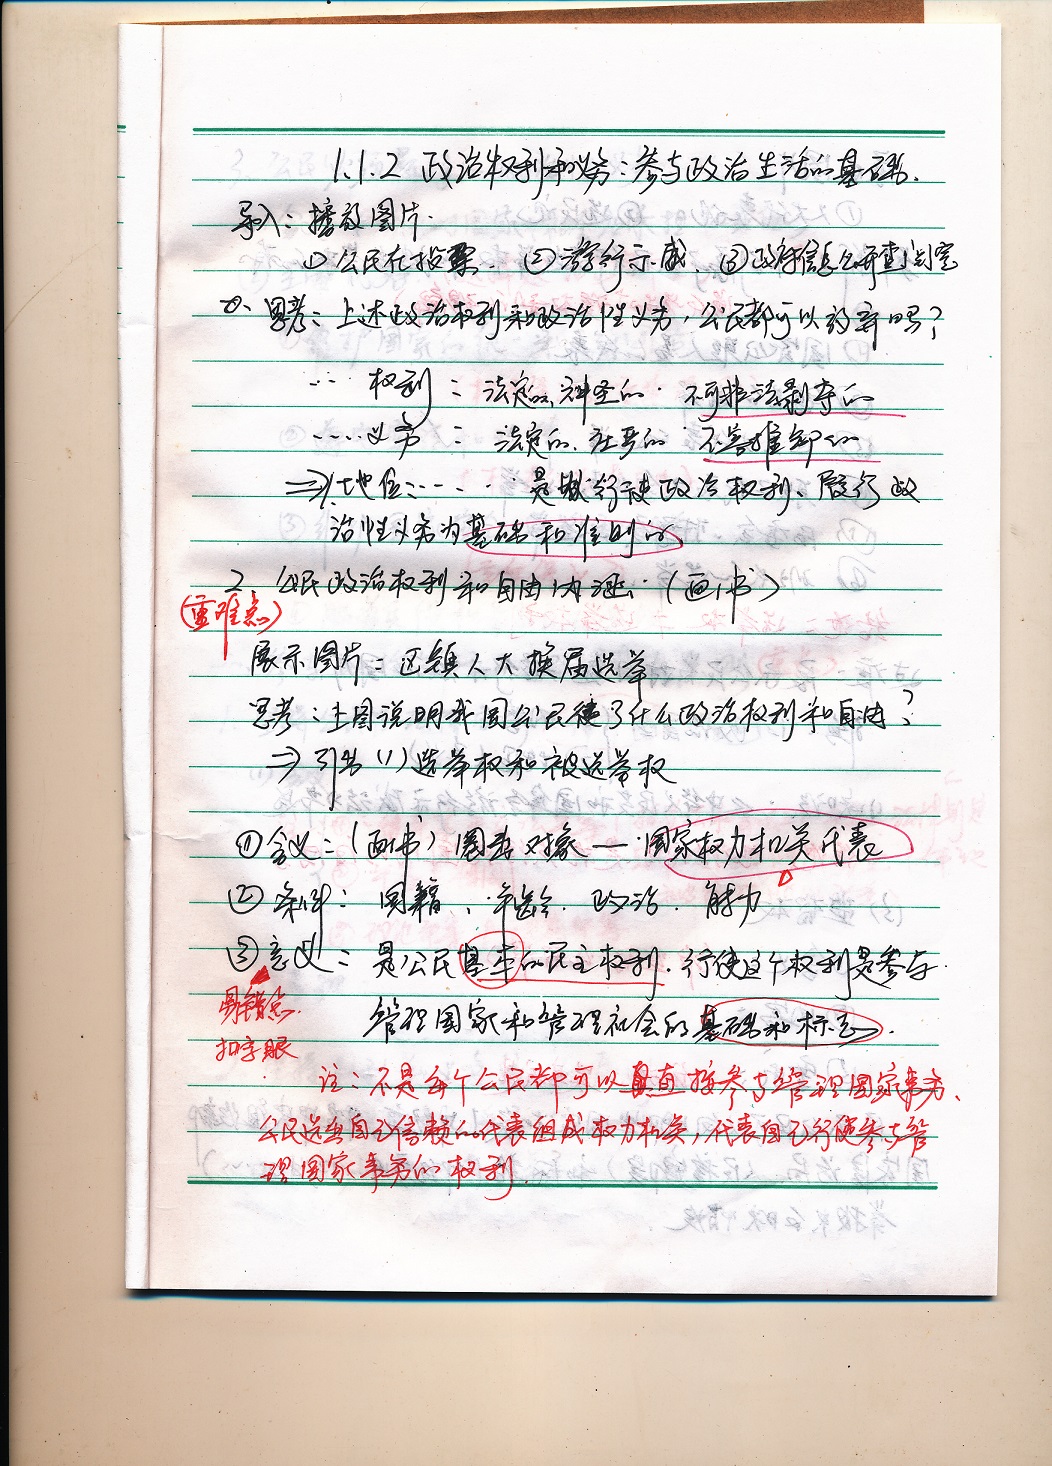 1.1.2 政治权利和义务：参与政治生活的基础.
导入：播放图片.
① 公民在投票. ② 游行示威. ③ 政府信息公开查阅室
思考：上述政治权利和政治性义务，公民都可以放弃吗？
… 权利：法定的、神圣的. 不可非法剥夺的
…. 义务：法定的、庄严的. 不容推卸的
⇒ 地位：…… 是公民行使政治权利、履行政
治性义务的基础和准则的
2、公民政治权利和自由内涵：（画书）
（重难点）
展示图片：区镇人大换届选举
思考：上图说明我国公民有了什么政治权利和自由？
⇒ 引出 (1) 选举权和被选举权
① 含义：（画书） 圈出对象 — 国家权力机关代表
② 条件：国籍、年龄. 政治. 能力
③ 意义：是公民基本的民主权利. 行使这个权利是参与
易错点.
管理国家和管理社会的基础和标志.
扣字眼
注：不是每个公民都可以直接参与管理国家事务、
公民选出自己信赖的代表组成权力机关，代表自己行使参与管
理国家事务的权利.